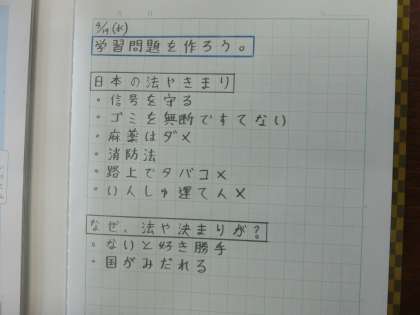 9/19(水)
学習問題を作ろう。
日本の法やきまり
・信号を守る
・ゴミを無断ですてない
・麻薬はダメ
・消防法
・路上でタバコ×
・いんしゅ運てん×
なぜ、法や決まりが?
・ないと好き勝手
・国がみだれる